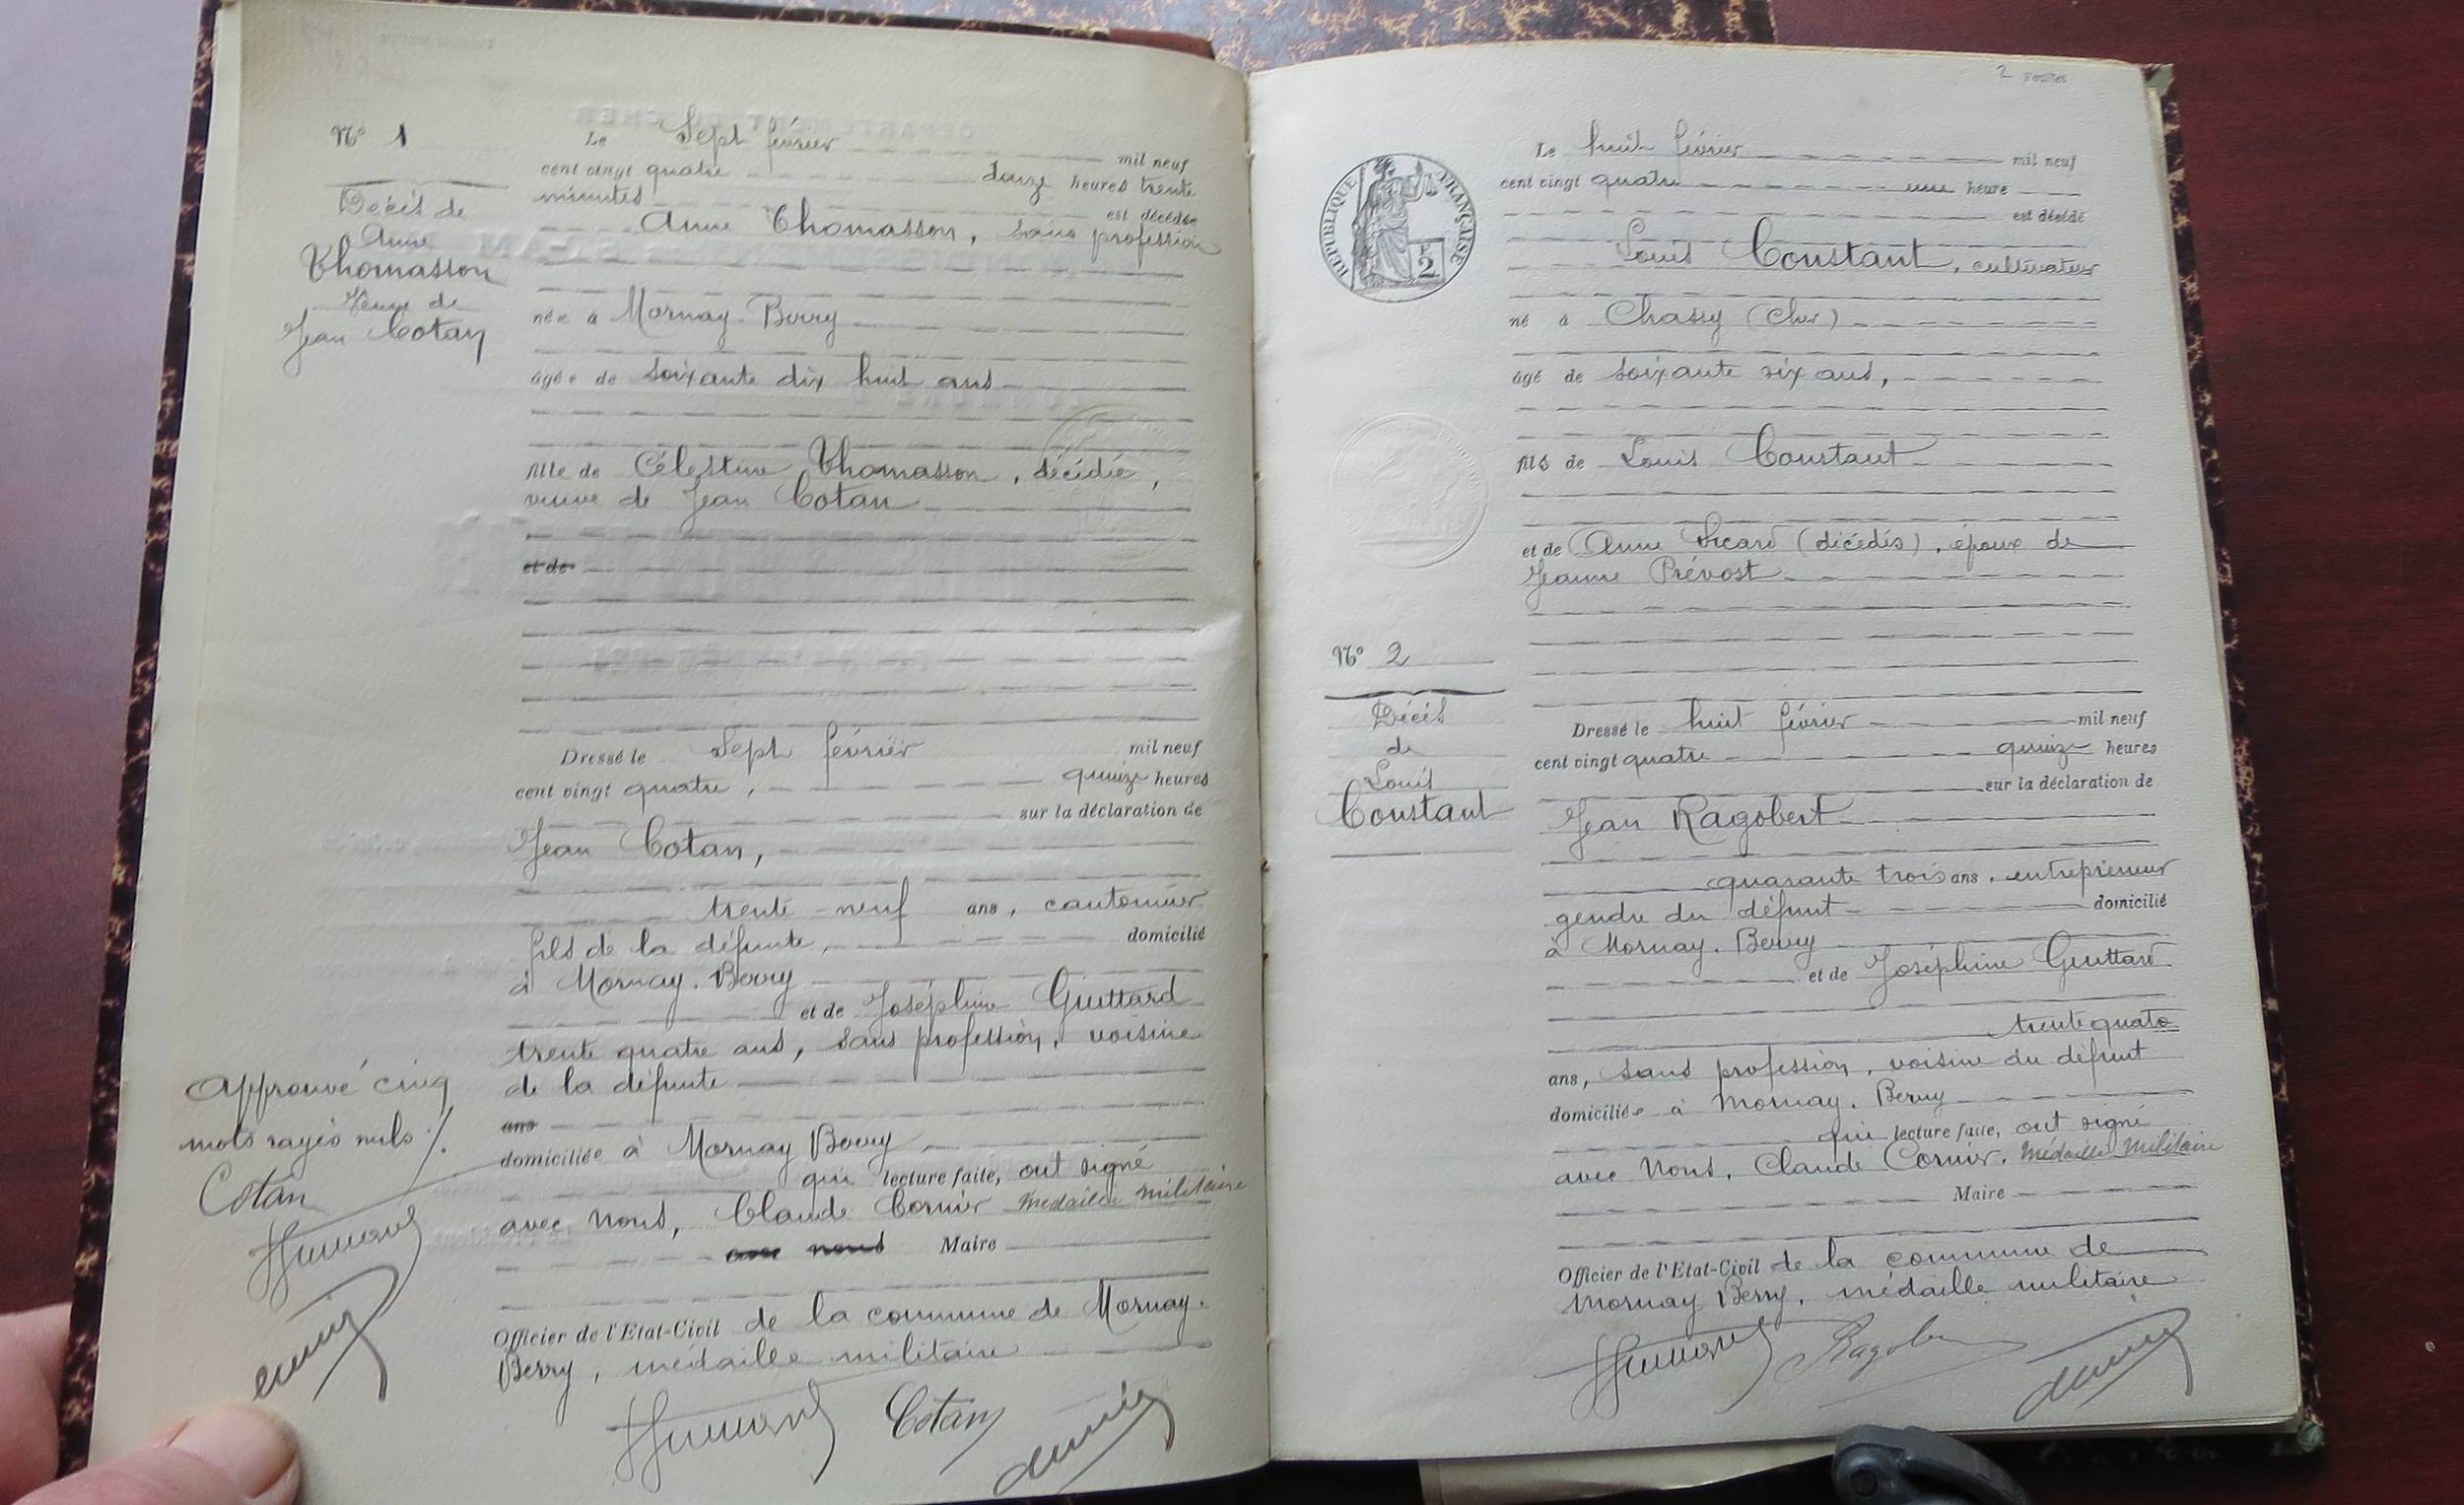 N° 1
Décès de
Anne
Thomasson
Veuve de
Jean Cotan
Le Sept février mil neuf
cent vingt quatre douze heures trente
minutes est décédée
Anne Thomasson, sans profession
née à Mornay-Berry
âgée de soixante dix huit ans
fille de Célestine Thomasson, décédée,
veuve de Jean Cotan
et de
Dressé le Sept février mil neuf
cent vingt quatre, quinze heures
sur la déclaration de
Jean Cotan,
trente-neuf ans, cantonnier
fils de la défunte, domicilié
à Mornay-Berry
et de Joséphine Guittard
trente quatre ans, sans profession, voisine
de la défunte
ans
domiciliée à Mornay Berry
qui lecture faite, ont signé
avec Nous, Claude Cornier Médaille Militaire
avec nous Maire
Officier de l'Etat-Civil de la commune de Mornay-
Berry, médaille militaire
Cotan
Approuvé cinq
mots rayés nuls
Cotan
2 Feuillet
RÉPUBLIQUE FRANÇAISE
2
F
Le huit février mil neuf
cent vingt quatre une heure
est décédé
Louis Constant, cultivateur
né à Chassy (Cher)
âgé de soixante six ans,
fils de Louis Constant
et de Anne Sicard (décédés), époux de
Jeanne Prévost
N° 2
Décès
de
Louis
Constant
Dressé le huit février mil neuf
cent vingt quatre quinze heures
sur la déclaration de
Jean Ragobert
quarante trois ans, entrepreneur
gendre du défunt domicilié
à Mornay-Berry
et de Joséphine Guittard
trente quatre
ans, sans profession, voisine du défunt
domiciliée à Mornay-Berry
qui lecture faite, ont signé
avec Nous, Claude Cornier, Médaille Militaire
Maire
Officier de l'Etat-Civil de la commune de
Mornay Berry, médaille militaire